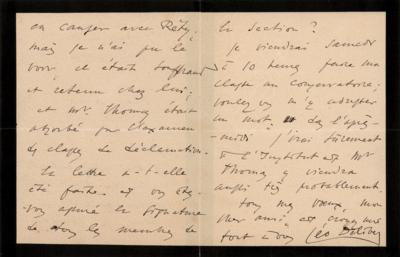 ou causer avec Réty,
mais je n'ai pu le
voir, il était souffrant
et retenu chez lui;
et Mr. Thomas était
absorbé par l'examen
des classes de déclamation.
La lettre a-t-elle
été faite et
vous la signature
de tous les membres de
la section?
Je viendrai samedi
à 10 heures faire ma
classe au conservatoire;
voulez-vous m'y adresser
un mot? Dans l'après-
midi j'irai sûrement
à l'Institut et Mr
Thomas y viendra
aussi très probablement.
tous mes vœux, mon
cher ami, et croyez-moi
tout à vous Léo Delibes